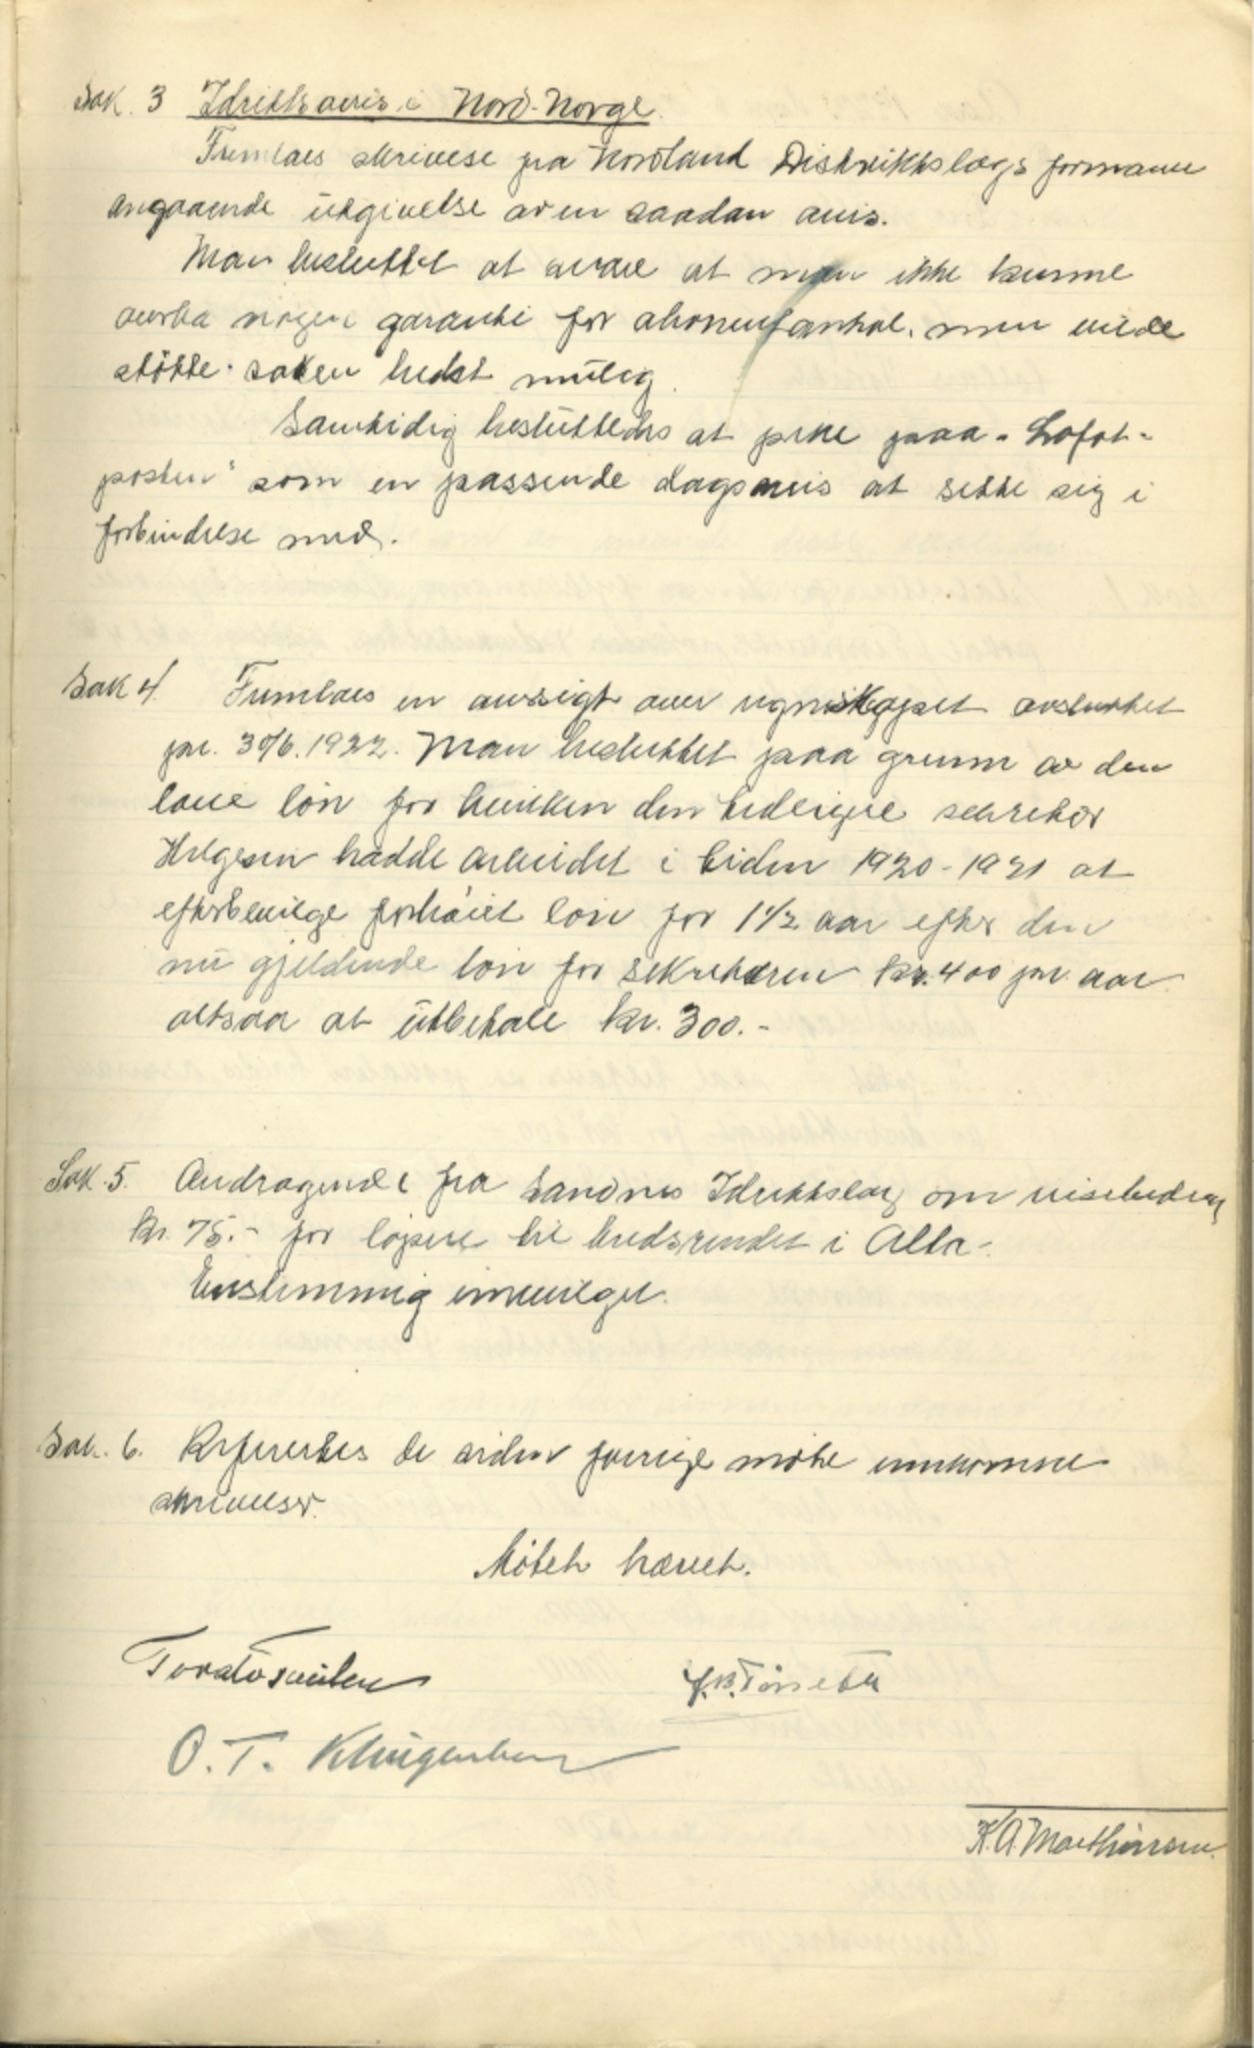 Sak. 3 Idrettsavis i Nord-Norge.
Fremlaes skrivelse fra Nordland Distriktslags formann
angaaende utgivelse av en saadan avis.
Man besluttet at svare at man ikke kunne
overta nogen garanti for abonnentantal. men vilde
støtte saken bedst mulig.
Samtidig besluttedes at peke paa "Lofot-
posten" som en passende dagsavis at sette sig i
forbindelse med.
Sak 4. Fremlaes en oversigt over regnskapet avsluttet
pr. 30/6. 1922. Man besluttet paa grunn av den
lave løn for hvilken den tidligere sekretær
Helgesen hadde arbeidet i tiden 1920-1921 at
efterbevilge forhøiet løn for 1 1/2 aar efter den
nu gjeldende løn for sekretæren kr. 400 pr. aar
altsaa at utbetale kr. 300.-
Sak. 5. Andragende fra Sandnes Idrettslag om reisebidrag
kr. 75.- for løpere til kredsrendet i Alta.
Enstemmig innvilget.
Sak. 6. Referertes de siden forrige møte innkomne
skrivelser.
Møtet hævet.
O. T. Klingenberg
K. A. Marthinsen.